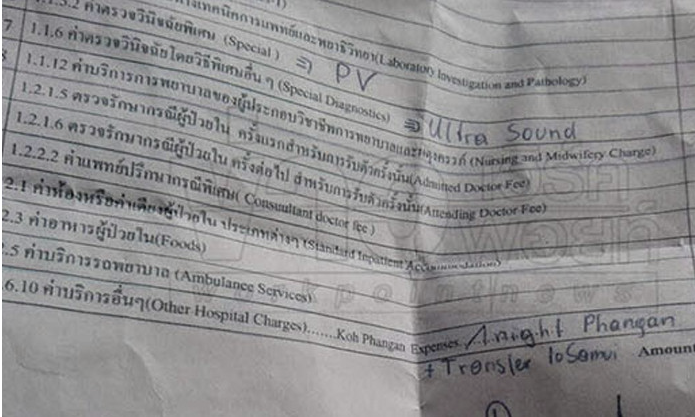 1.1.3.2 ทางเทคนิคการแพทย์และพยาธิวิทยา(Laboratory Investigation and Pathology)
1.1.6 ค่าตรวจวินิจฉัยพิเศษ (Special ) ⇒ PV
1.1.12 ค่าตรวจวินิจฉัยโดยวิธีพิเศษอื่น ๆ (Special Diagnostics) ⇒ Ultra Sound
ค่าบริการการพยาบาลของผู้ประกอบวิชาชีพการพยาบาลและผดุงครรภ์ (Nursing and Midwifery Charge)
1.2.1.5 ตรวจรักษากรณีผู้ป่วยใน ครั้งแรกสำหรับการรับตัวครั้งนั้น(Admitted Doctor Fee)
1.2.1.6 ตรวจรักษากรณีผู้ป่วยใน ครั้งต่อไป สำหรับการรับตัวครั้งนั้น(Attending Doctor Fee)
1.2.2.2 ค่าแพทย์ปรึกษากรณีพิเศษ( Consuultant doctor fee )
2.1 ค่าห้องหรือค่าเตียงผู้ป่วยใน ประเภทต่างๆ (Standard Inpatient Accommodation)
2.3 ค่าอาหารผู้ป่วยใน(Foods)
.5 ค่าบริการรถพยาบาล (Ambulance Services)
6.10 ค่าบริการอื่นๆ(Other Hospital Charges)......Koh Phangan Expenses 1 night Phangan
+ Transfer to Samui Amount
workpointnews